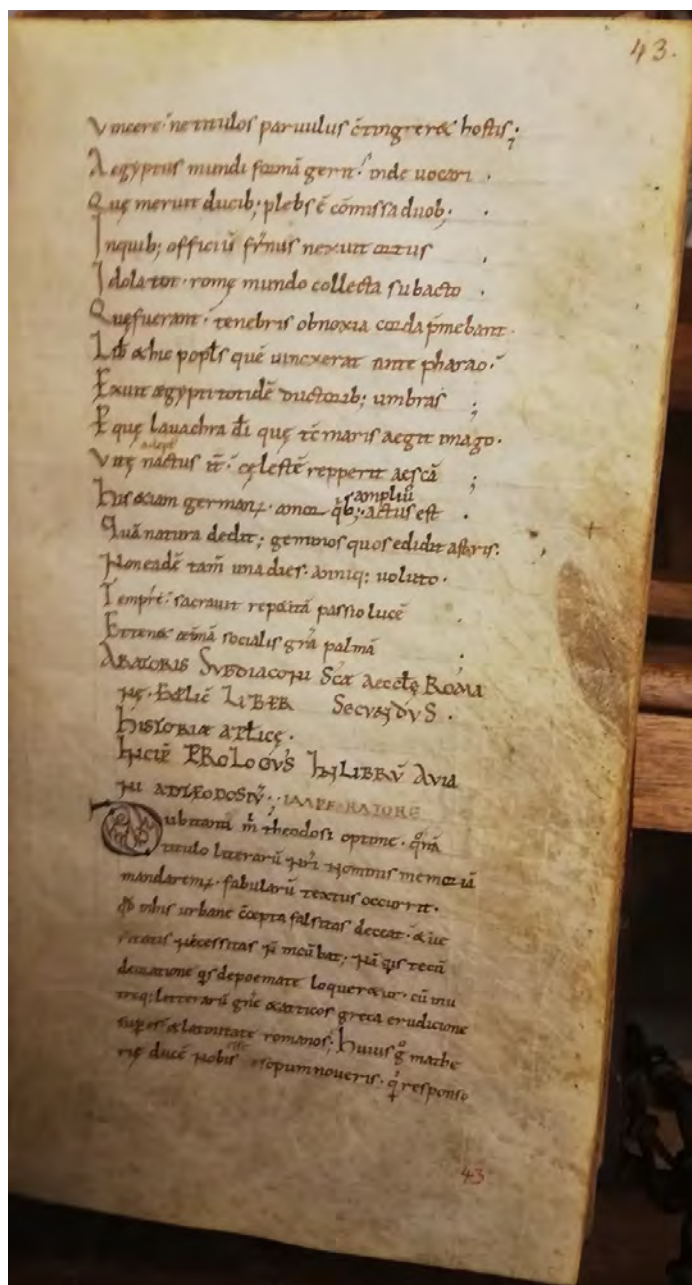 43.
Vincere· ne titulos paruulus c̄tingeret hostis;
Aegyptus mundi formā gerit· inde uocari
Quę meruit ducib; plebs ē cōmissa duob;
Inquib; officiū
Idola tot· romę mundo collecta subacto
Quę fuerant· tenebris obnoxia corda p̄mebant·
hic quē uinxerat ante pharao·
Exuit ægypti totidē ductorib; umbras ;
Equę lauachra dī quę tc̄ maris aegit imago·
Vitę nactus cęlestē repperit aescā ;
ampliu
actus est
Quā natura dedit; geminos quos edidit astris:
Non eadē tam̄ una dies· anniq; uoluto·
Tempr̄e· sacrauit repetitā passio lucē
Et tenet ætnā socialis gr̄a palmā
ARATORIS SVBDIACONI SCæ AECCŁĘ ROMA
NĘ· LIBER SECVNDVS·
hISTORIAE APŁICĘ·
INCIP̄ PROLOGVS IN LIBRV̄ AVIA
NI AD THEODOSIV̄; IMPERATORE
Dubitanti m̄ theodosi optime· quā
titulo literarū nr̄i nominis memoriā
mandarem· fabularū textus occurrit·
urbane c̄cepta falsitas deceat· & ue
ritatis necessitas n̄ incūbat; Nā qis tecū
deoratione qs depoemate loqueretur· cū inu
troq; litterarū gn̄e & atticos greca erudicione
supes & latinitate romanos; huius g mathe
rię ducē nobis esopum noueris· responso
43